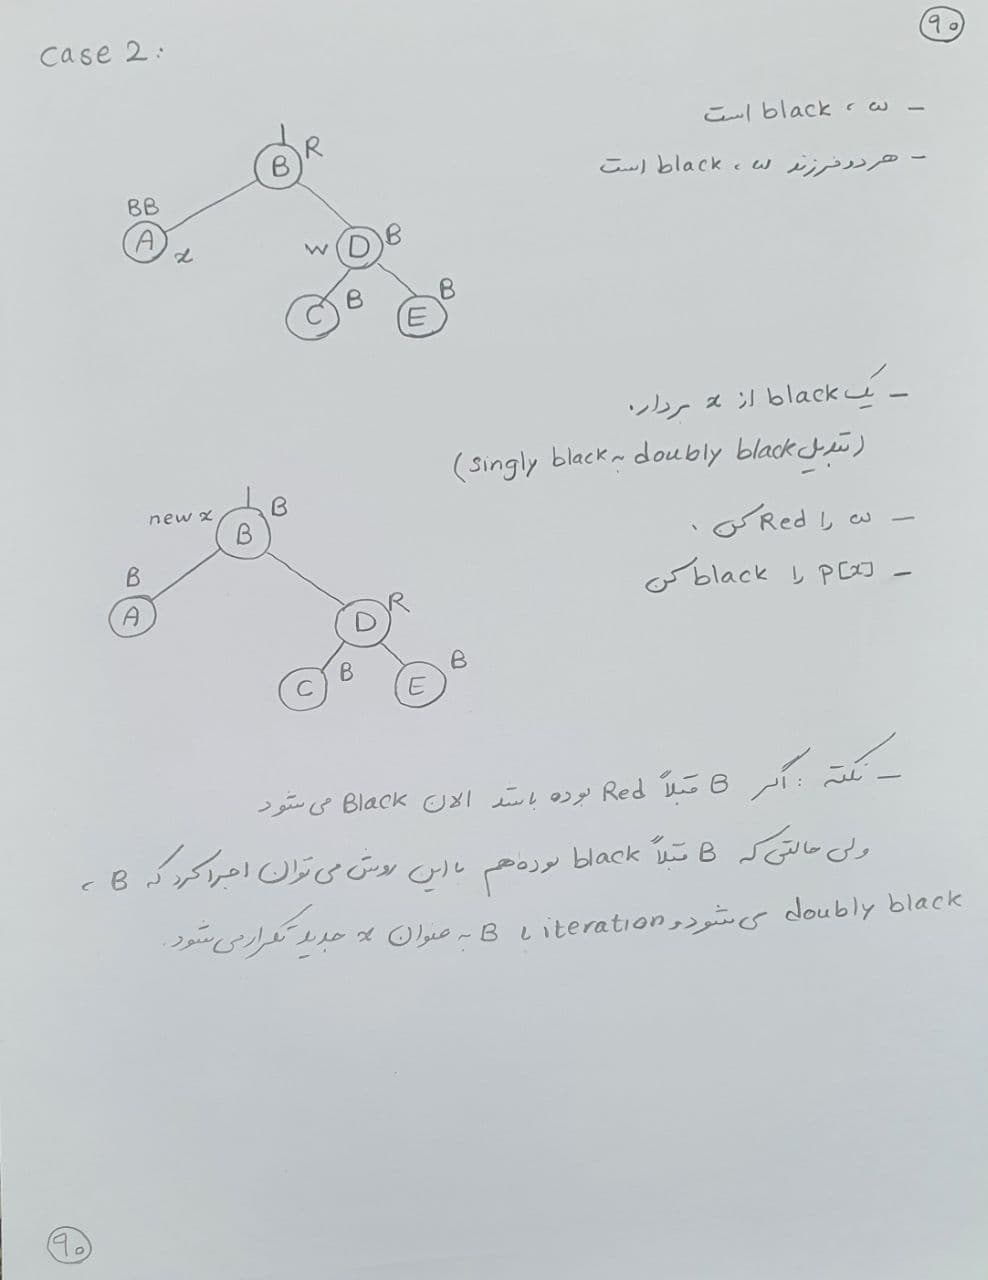 ۹۰
Case 2:
- w ، black است
- هر دو فرزند w ، black است
B R
BB
A x
w D B
C B
E B
- یک black از x بردار.
(تبدیل doubly black به singly black)
- w را Red کن .
- p[x] را black کن
new x B B
B
A
D R
C B
E B
- نکته : اگر B قبلاً Red بوده باشد الان Black می شود
ولی حالتی که B قبلاً black بوده هم با این روش می توان اجرا کرد که B ،
doubly black می شود و iteration با B به عنوان x جدید تکرار می شود.
۹۰